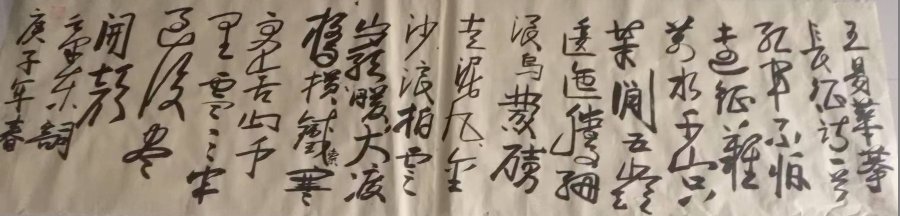 長征詩
紅軍不怕
遠征難
万水千山只
等閑五嶺
逶迤騰細
浪烏蒙磅
走泥丸金
沙浪拍云
崖暖大渡
橋橫鐵索寒
更喜山千
里雪三軍
過後盡
開顏
東詞
庚子年春